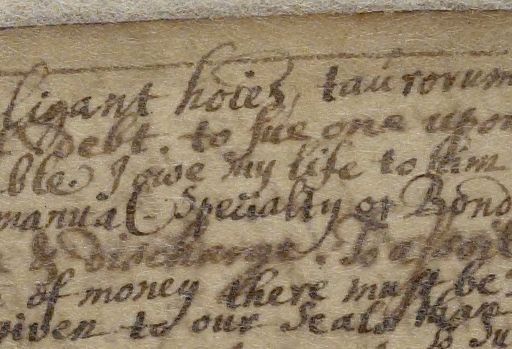 ligant hoīes, taurorum
Debt. to sue one upon
ble. I owe my life to him
manual. Specialty or Bond
& discharge. To
of money there must be
given to our Seals than